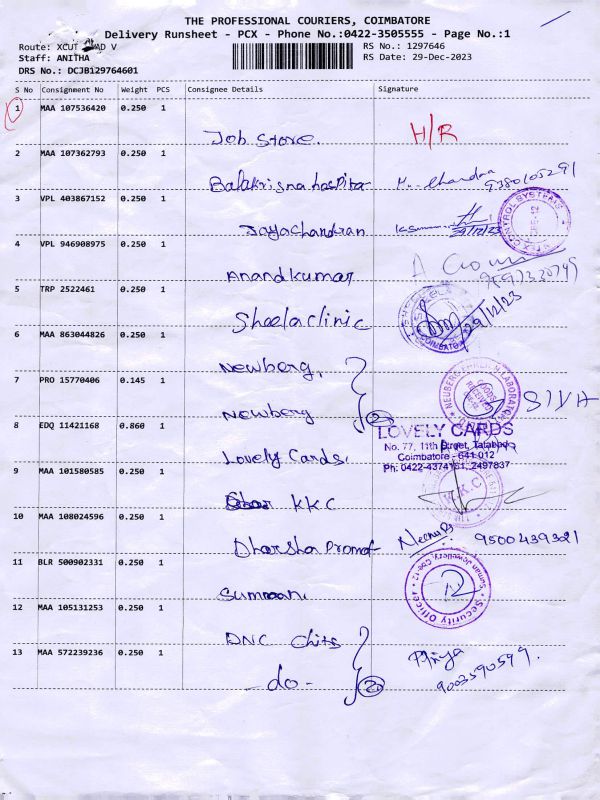 THE PROFESSIONAL COURIERS, COIMBATORE
Delivery Runsheet - PCX - Phone No.:0422-3505555 - Page No.:1
Route: XCUT AD V
RS No.: 1297646
Staff: ANITHA
RS Date: 29-Dec-2023
DRS No.: DCJB129764601
S No Consignment No Weight PCS Consignee Details Signature
1 MAA 107536420 0.250 1
Job Store. H/R
2 MAA 107362793 0.250 1
Balakrisna hospital Chandra
9380105291
3 VPL 403867152 0.250 1
Jayachandran 29/12/23
CONTROL SYSTEMS
4 VPL 946908975 0.250 1
Anandkumar
5 TRP 2522461 0.250 1
Sheela clinic 29/12/23
COIMBATORE
6 MAA 863044826 0.250 1
Newberg,
7 PRO 15770406 0.145 1
Newberg 2 SIVA
NEUBERG EHRLICH LABORATORY
8 EDQ 11421168 0.860 1
LOVELY CARDS
No. 77, 11th Street, Tatabad,
Coimbatore - 641 012
Ph: 0422-4374151, 2497837
Lovely Cards.
9 MAA 101580585 0.250 1
KKC K.K.C
10 MAA 108024596 0.250 1
Dharsha Promot 9500439321
11 BLR 500902331 0.250 1
Summani
Suman Jewellery, Cbe-12 * Security Officer *
12 MAA 105131253 0.250 1
DNC Chits
13 MAA 572239236 0.250 1
Priya
- do - 2 9003590599.